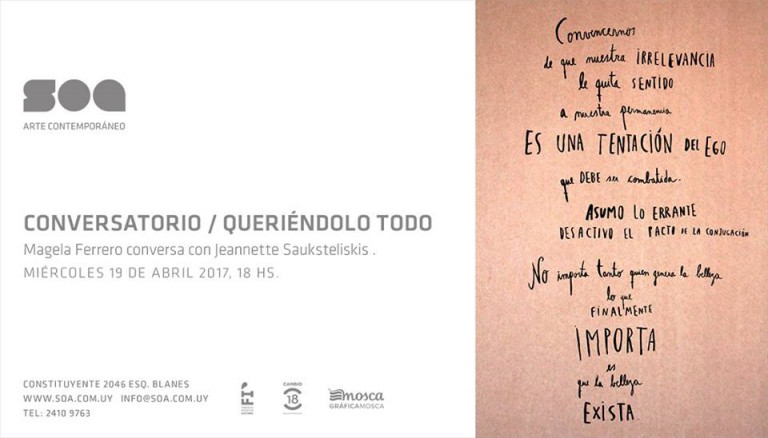 SOA
ARTE CONTEMPORÁNEO
CONVERSATORIO / QUERIÉNDOLO TODO
Magela Ferrero conversa con Jeannette Sauksteliskis .
MIÉRCOLES 19 DE ABRIL 2017, 18 HS.
CONSTITUYENTE 2046 ESQ. BLANES
WWW.SOA.COM.UY INFO@SOA.COM.UY
TEL: 2410 9763
FI
CAMBIO
18
mosca
GRÁFICAMOSCA
Convencernos
de que nuestra IRRELEVANCIA
le quita SENTIDO
a nuestra permanencia
ES UNA TENTACIÓN DEL EGO
que DEBE ser combatida.
ASUMO LO ERRANTE
DESACTIVO EL PACTO DE LA CONJUGACIÓN
No importa tanto quien genera la belleza
lo que
FINALMENTE
IMPORTA
es
que la belleza
EXISTA